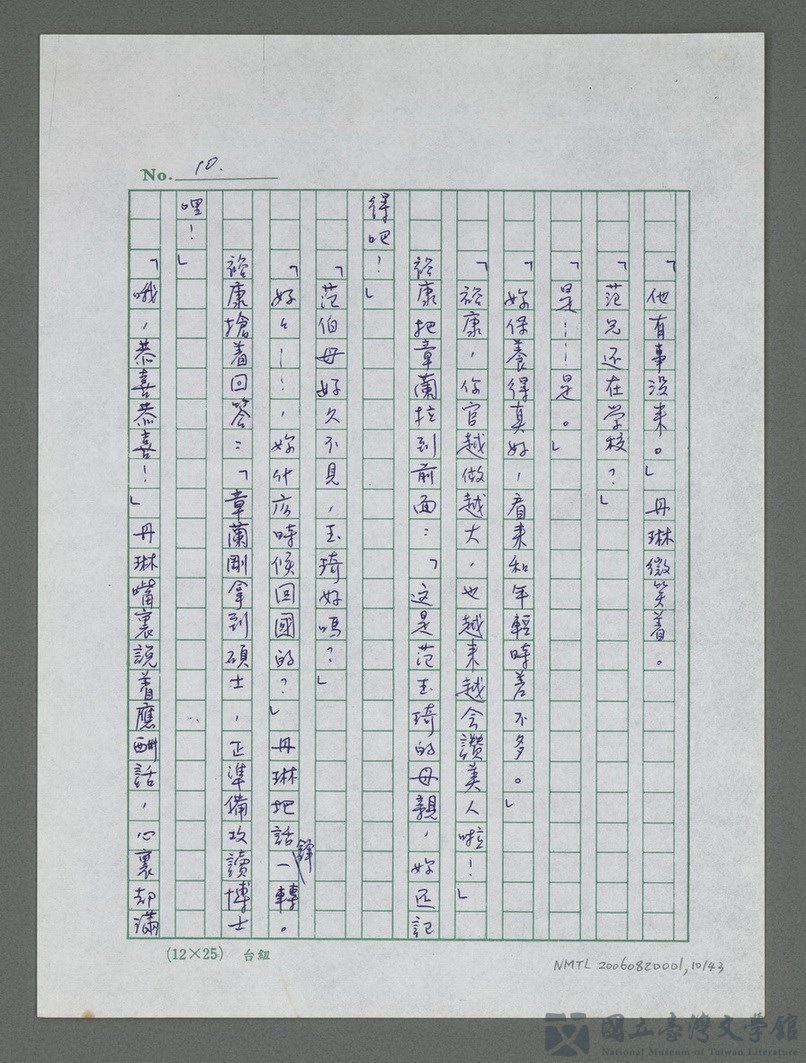 No. 10.
「他有事没来。」丹琳微笑着。
「范兄还在学校？」
「是……是。」
「妳保養得真好，看来和年輕時差不多。」
「裕康，你官越做越大，也越来越会讚美人啦！」
裕康把章蘭拉到前面：「这是范玉琦的母親，妳还記
得吧！」
「范伯母好久不見，玉琦好嗎？」
「好々……，妳什広時候回國的？」丹琳把話鋒一轉。
裕康搶着回答：「章蘭剛拿到碩士，正準備攻讀博士
哩！」
「哦，恭喜恭喜！」丹琳嘴裏説着應酬話，心裏却滿
(12×25) 台鈕
NMTL 20060820001,10/43
國立臺灣文學館
National Museum of Taiwan Literature